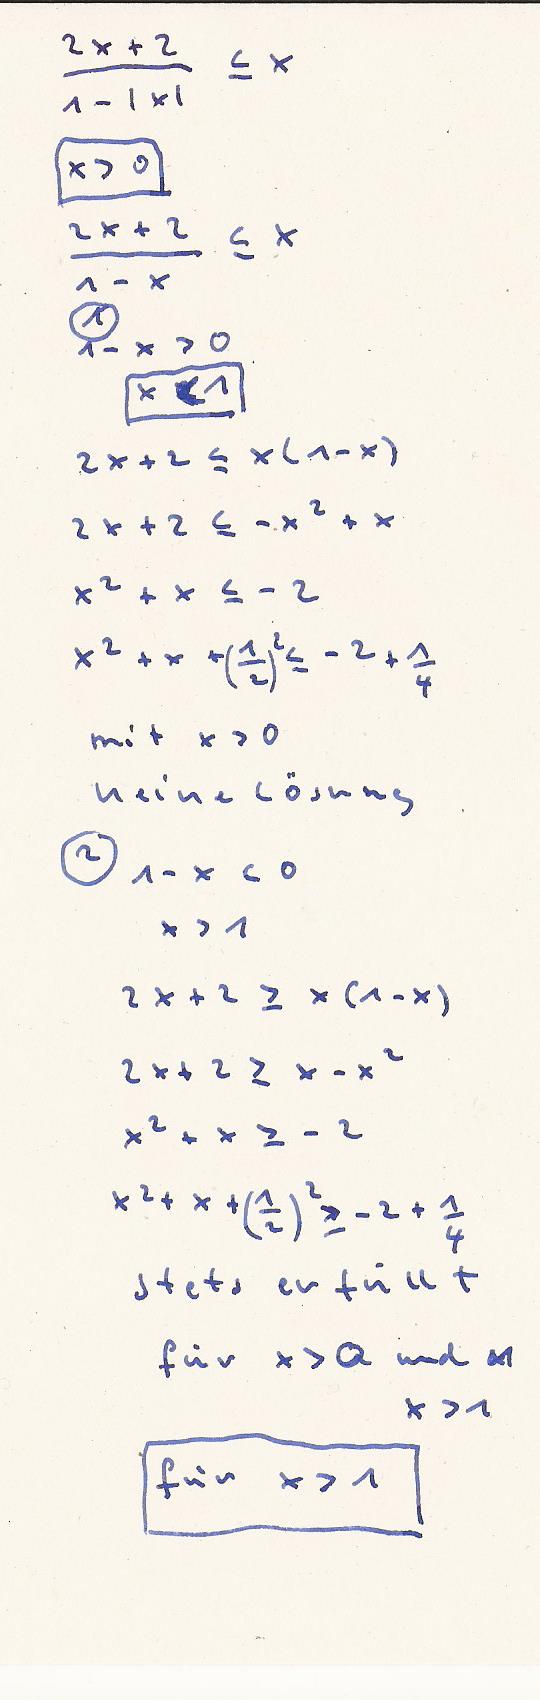 2x + 2 / 1 - |x| ≤ x
x > 0
2x + 2 / 1 - x ≤ x
1
1 - x > 0
x < 1
2x + 2 ≤ x(1-x)
2x + 2 ≤ -x² + x
x² + x ≤ -2
x² + x + (1/2)² ≤ -2 + 1/4
mit x > 0
keine Lösung
2
1 - x < 0
x > 1
2x + 2 ≥ x(1-x)
2x + 2 ≥ x - x²
x² + x ≥ -2
x² + x + (1/2)² ≥ -2 + 1/4
stets erfüllt
für x > 0 und
x > 1
für x > 1